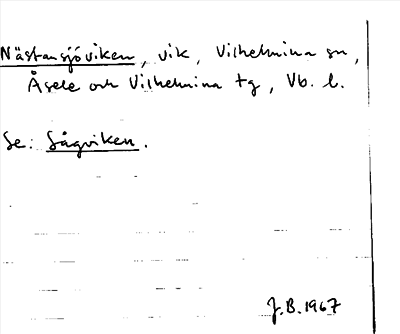 Nästansjöviken, vik, Vilhelmina sn,
Åsele och Vilhelmina tg, Vb. l.
Se: Sågviken.
J.B. 1967